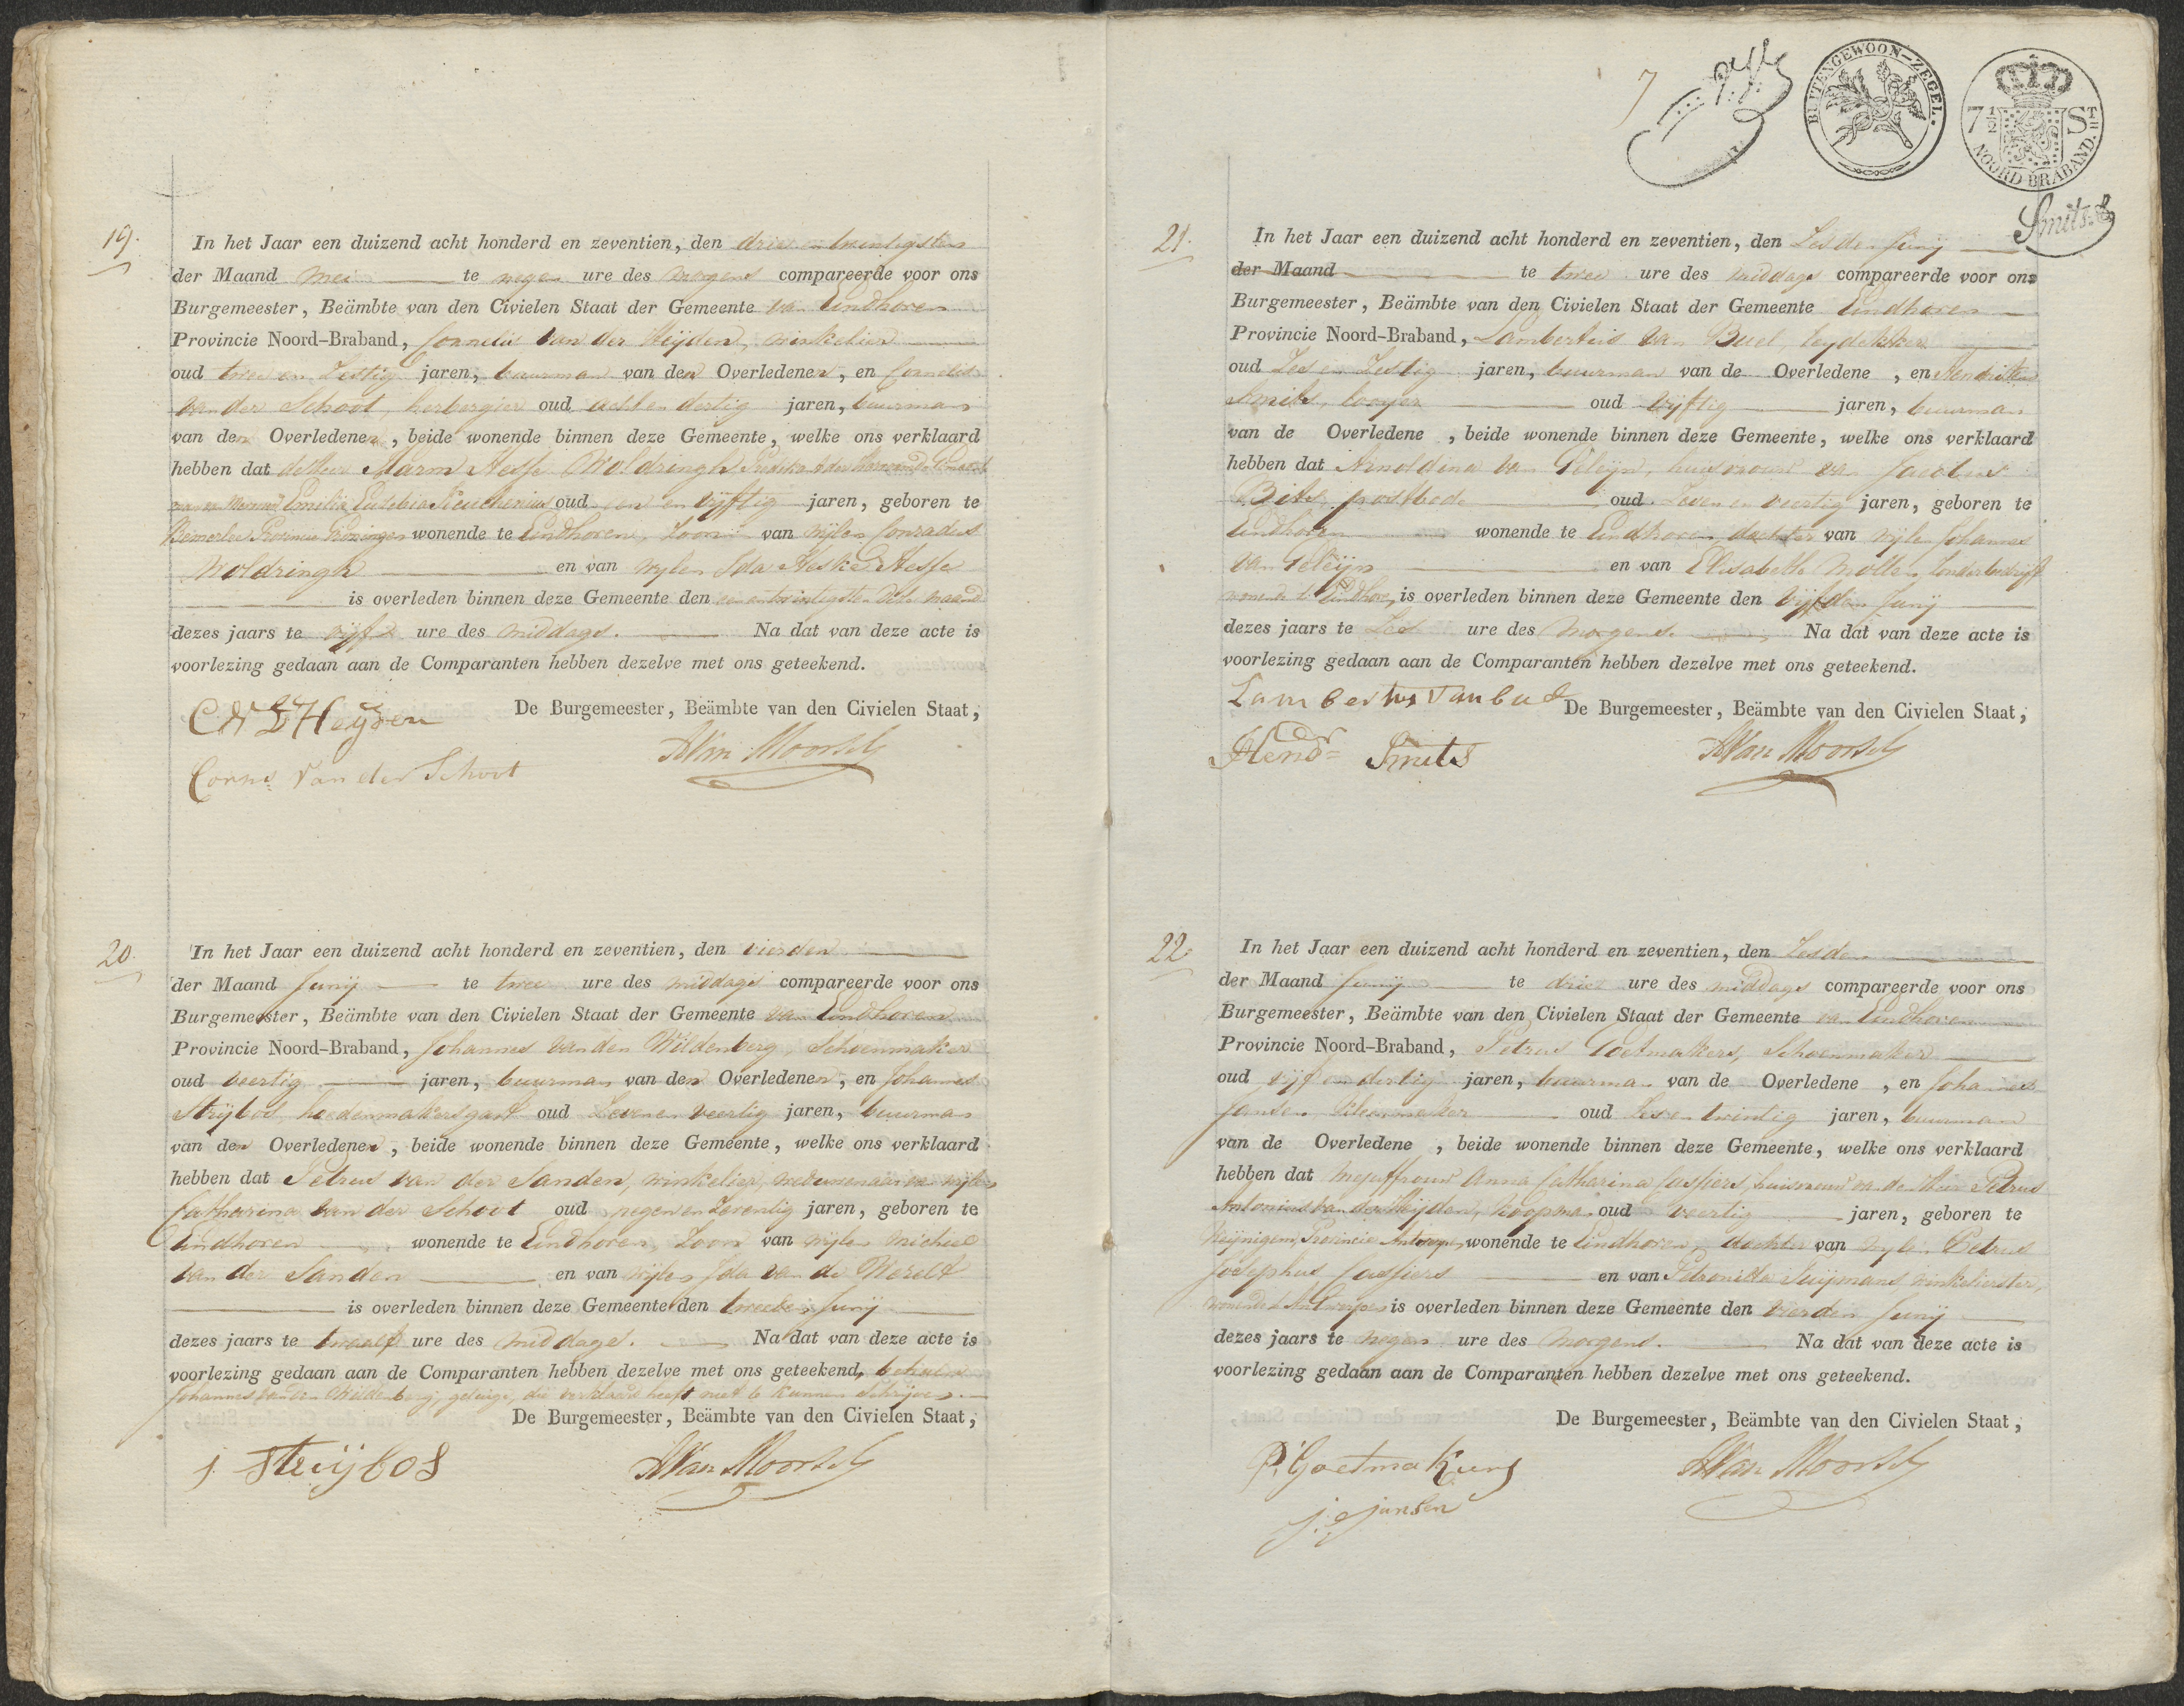 19.
In het Jaar een duizend acht honderd en zeventien, den drie en twintigsten
der Maand Mei te negen ure des morgens compareerde voor ons
Burgemeester, Beämbte van den Civielen Staat der Gemeente van Eindhoven
Provincie Noord-Braband, Cornelis van der Heijden, winkelier
oud twee en Zestig jaren, buurman van den Overledenen, en Cornelis
van der Schoot, herbergier oud acht en dertig jaren, buurman
van den Overledenen, beide wonende binnen deze Gemeente, welke ons verklaard
hebben dat de Heer Harm Hesse Woldringh
Emilia Eusebia oud en vijftig jaren, geboren te
Provincie Groningen wonende te Eindhoven, Zoon van wijlen Conradus
Woldringh en van wijlen Ida Heske Hesse
is overleden binnen deze Gemeente den een en twintigsten dezer maand
dezes jaars te vijf ure des middags. Na dat van deze acte is
voorlezing gedaan aan de Comparanten hebben dezelve met ons geteekend.
De Burgemeester, Beämbte van den Civielen Staat,
C V D Heijden
AVan Moorsel
Corns van der Schoot
20.
In het Jaar een duizend acht honderd en zeventien, den vierden
der Maand Junij te twee ure des middags compareerde voor ons
Burgemeester, Beämbte van den Civielen Staat der Gemeente van Eindhoven
Provincie Noord-Braband, Johannes van den Wildenberg, Schoenmaker
oud veertig jaren, buurman van den Overledenen, en Johannes
Strijbos hoedenmakersgast oud Zeven en veertig jaren, buurman
van den Overledenen, beide wonende binnen deze Gemeente, welke ons verklaard
hebben dat Petrus van der Sanden, winkelier, weduwenaar van wijlen
Catharina van der Schoot oud negen en Zeventig jaren, geboren te
Eindhoven wonende te Eindhoven, Zoon van wijlen Michiel
van der Sanden en van wijlen Ida van de Werelt
is overleden binnen deze Gemeente den tweeden Junij
dezes jaars te twaalf ure des middags. Na dat van deze acte is
voorlezing gedaan aan de Comparanten hebben dezelve met ons geteekend, behalve
Johannes van den Wildenberg, getuige, die verklaard heeft niet te kunnen Schrijven.
De Burgemeester, Beämbte van den Civielen Staat,
J. Strijbos
AVan Moorsel
7
BUITENGEWOON-ZEGEL.
7 1/2 S
NOORD-BRABAND.
Smits
21.
In het Jaar een duizend acht honderd en zeventien, den Zesden Junij
der Maand te twee ure des middags compareerde voor ons
Burgemeester, Beämbte van den Civielen Staat der Gemeente Eindhoven
Provincie Noord-Braband, Lambertus van Buel, leydekker
oud Zes en Zestig jaren, buurman van de Overledene, en Hendrikus
Smits, looyer oud vijftig jaren, buurman
van de Overledene, beide wonende binnen deze Gemeente, welke ons verklaard
hebben dat Arnoldina van Geleijn, huisvrouw van Jacobus
Bits, postbode oud Zeven en veertig jaren, geboren te
Eindhoven wonende te Eindhoven, dochter van wijlen Johannes
van Geleijn en van Elisabeth Mollen, Zonder bedrijf
wonende te Eindhoven, is overleden binnen deze Gemeente den vijfden Junij
dezes jaars te Zes ure des morgens. Na dat van deze acte is
voorlezing gedaan aan de Comparanten hebben dezelve met ons geteekend.
Lambertus van bul
De Burgemeester, Beämbte van den Civielen Staat,
Hend Smits
AVan Moorsel
22.
In het Jaar een duizend acht honderd en zeventien, den Zesden
der Maand Junij te drie ure des middags compareerde voor ons
Burgemeester, Beämbte van den Civielen Staat der Gemeente van Eindhoven
Provincie Noord-Braband, Petrus Goetmakers, Schoenmaker
oud vijf en dertig jaren, buurman van de Overledene, en Johannes
Jansen oud Zes en twintig jaren, buurman
van de Overledene, beide wonende binnen deze Gemeente, welke ons verklaard
hebben dat Mejuffrouw Anna Catharina Caspers, huisvrouw van den Heer Petrus
Antonius van der Heijden, koopman oud veertig jaren, geboren te
Provincie Antwerpen, wonende te Eindhoven, dochter van wijlen Petrus
Josephus Caspers en van Petronilla winkelierster,
wonende te Antwerpen is overleden binnen deze Gemeente den vierden Junij
dezes jaars te negen ure des morgens. Na dat van deze acte is
voorlezing gedaan aan de Comparanten hebben dezelve met ons geteekend.
De Burgemeester, Beämbte van den Civielen Staat,
P. Goetmakers
AVan Moorsel
J. Jansen